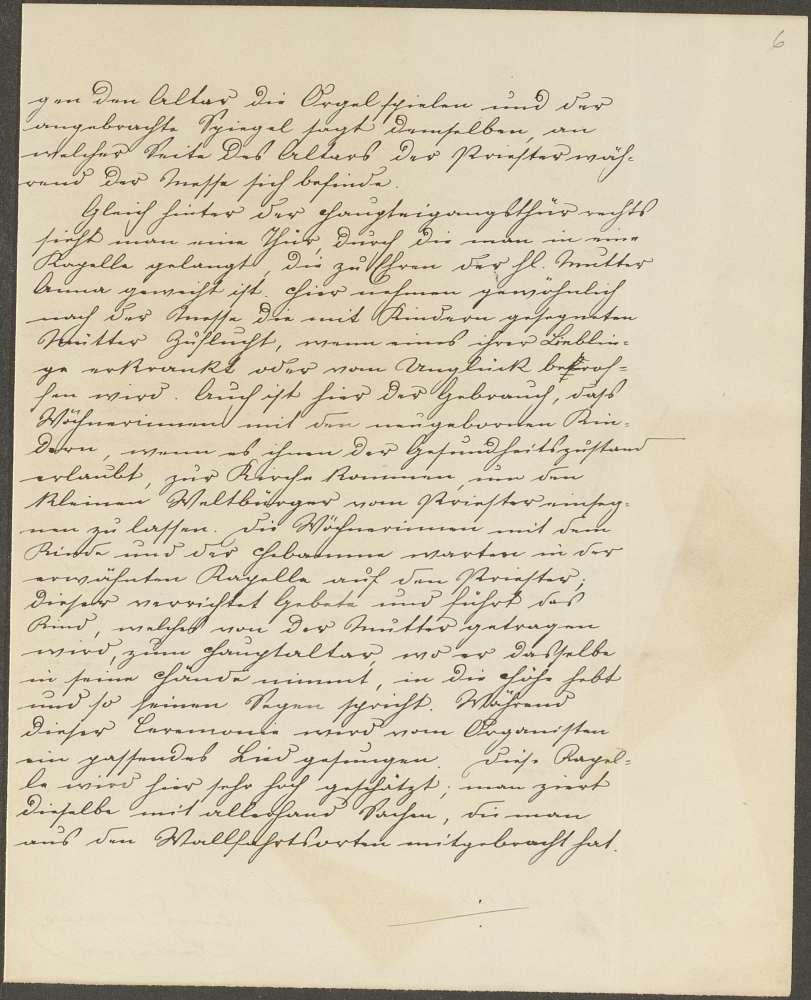 6
gen den Altar die Orgel spielen und der
angebrachte Spiegel sagt demselben, an
welcher Seite des Altars der Priester wäh-
rend der Messe sich befinde.
Gleich hinter der Haupteigangsthür rechts
sieht man eine Thür, durch die man in eine
Kapelle gelangt, die zu Ehren der hl. Mutter
Anna geweiht ist. Hier nehmen gewöhnlich
nach der Messe die mit Kindern gesegneten
Mütter Zuflucht, wenn eines ihrer Lieblin-
ge erkrankt oder vom Unglück betrof-
fen wird. Auch ist hier der Gebrauch, dass
Wöchnerinnen mit den neugebornen Kin-
dern, wenn es ihnen der Gesundheitszustand
erlaubt, zur Kirche kommen, um den
kleinen Weltbürger vom Priester einseg-
nen zu lassen. Die Wöchnerinnen mit dem
Kinde und der Hebamme warten in der
erwähnten Kapelle auf den Priester;
dieser verrichtet Gebete und führt das
Kind, welches von der Mutter getragen
wird, zum Hauptaltar, wo er dasselbe
in seine Hände nimmt, in die Höhe hebt
und so seinen Segen spricht. Während
dieser Ceremonie wird vom Organisten
ein passendes Lied gesungen. Diese Kapel-
le wird hier sehr hoch geschätzt; man ziert
dieselbe mit allerhand Sachen, die man
aus den Wallfahrtsorten mitgebracht hat.